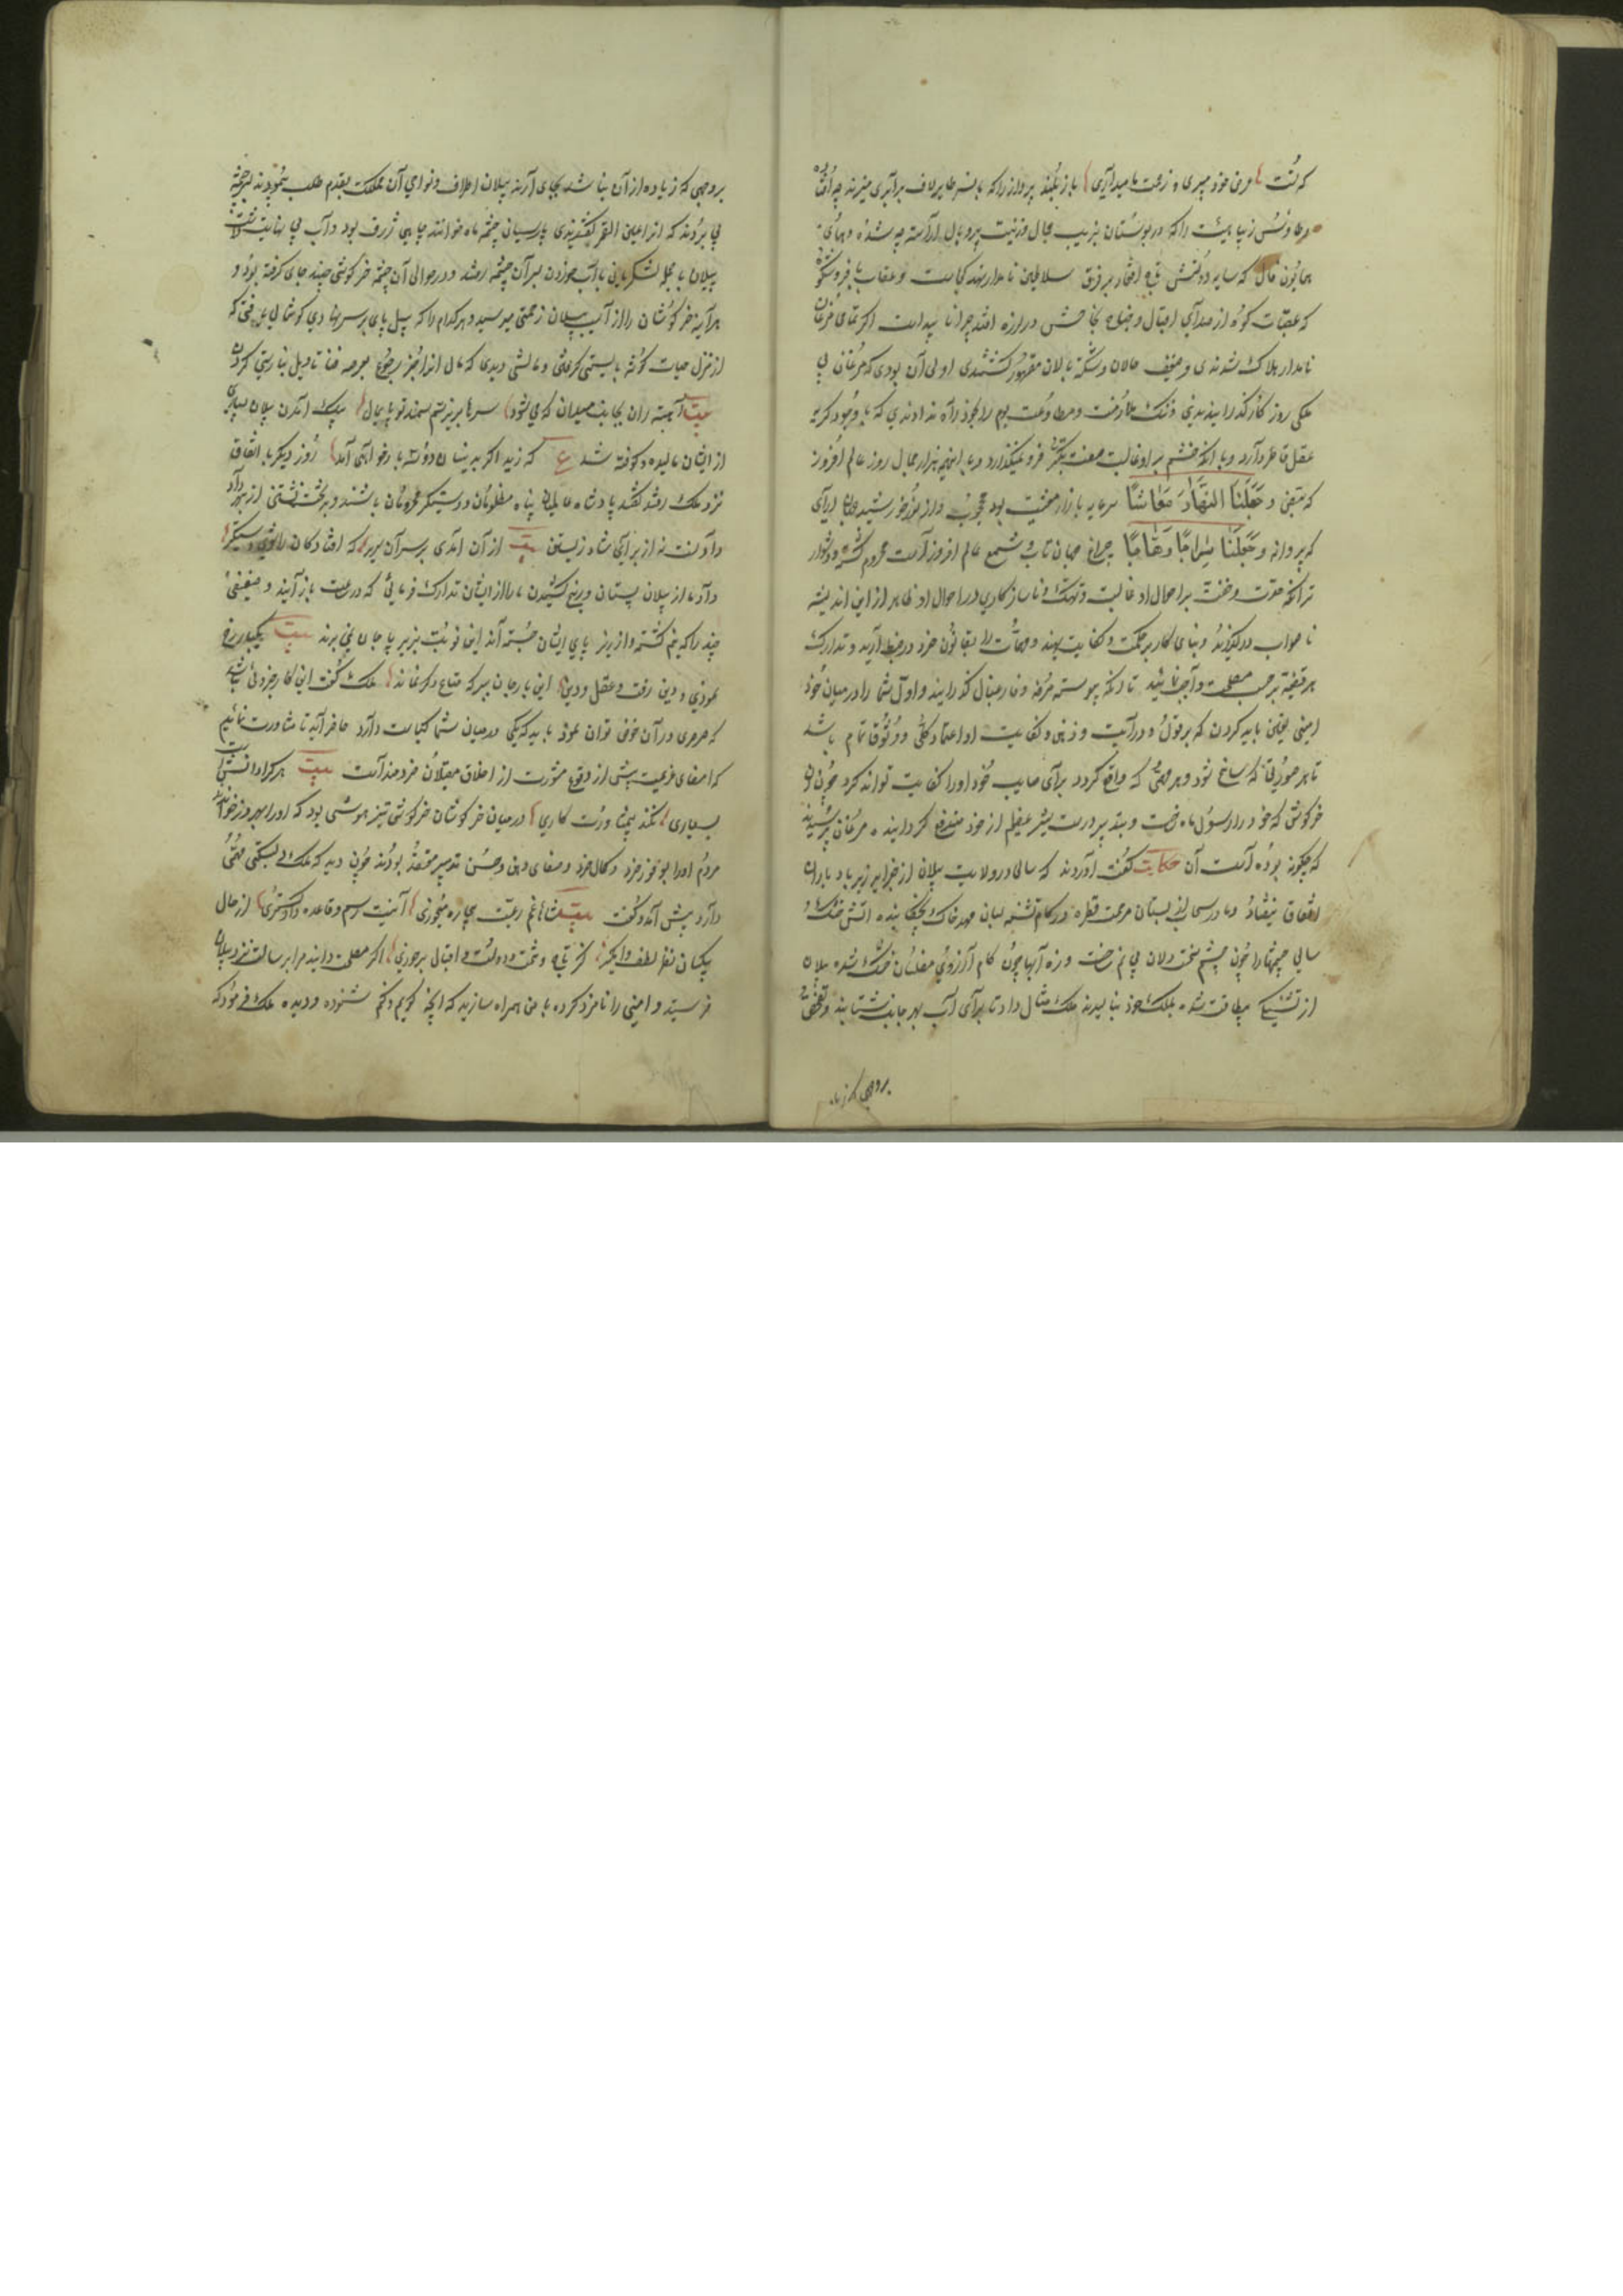 که گفت عرض خود میبری و زحمت ما میداری باز بلند پرواز را که با نسر طایر لاف برابری میزند چه افتاده
و طاوس زیبا هیئت را که در بوستان بزیب جمال و زینت پر و بال آراسته چه شده و همای
همایون فال که سایه دولتش تاج افتخار بر فرق سلاطین نامدار نهد کجاست و عقاب با فر و شکوه
که عقبات کوه از صدای اقبال و جناح در لرزه افتد چرا نا پیداست اگر تمامی مرغان
نامدار هلاک شدندی و ضعیف حالان و شکسته بالان مقهور گشتندی اولی آن بودی که مرغان بی
ملکی روزگار گذرانیدندی و ننگ ملازمت و مطاوعت بوم را بخود راه ندادندی که با وجود کریه
عقل قاصر دارد و با آنکه خشم بر او غالب صفت تکبر فرو نمیگذارد و با اینهمه از جمال روز عالم افروز
که مقتضی و جعلنا النهار معاشا سرمایه بازار معیشت بود محجوب و از نور خورشید جهان آرای
که پروانه و جعلنا سراجا وهاجا چراغ جهان تاب و شمع عالم افروز است محروم گشته و دشوار
تر آنکه حدت و خفت بر احوال او غالبست و تهتک و ناسازگاری در احوال او ظاهر از این اندیشه
نا صواب درگذرید و بنای کار بر حکمت و کفایت نهید و مهمات را بقانون خرد در ضبط آرید و تدارک
هر قضیه بر حسب مصلحت واجب شناسید تا در نتیجه پیوسته مرفه و فارغبال گذرانید و اول شما را در میان خود
امینی تعیین باید کردن که بر قول و درایت و ذهن و کفایت او اعتماد کلی و وثوق تمام باشد
تا هر صورتی که سانح شود و هر مهمی که واقع گردد برای صایب خود او را کفایت تواند کرد چون آن
خرگوش که خود را رسول ماه ساخت و بتدبیر درست شر عظیم از خود مندفع گردانید مرغان پرسیدند
که چگونه بوده است آن حکایت گفت آورده اند که سالی در ولایت پیلان از جزایر زیرباد باران
اتفاق نیفتاد و مادر سحاب از پستان مرحمت قطره در کام تشنه لبان مهد خاک نچکانید آتش خشک
سالی چشمها را چون چشم سخت دلان بی نم ساخت و زه آبها چون کام آرزوی مفلسان خشک شده پیلان
از تشنگی بیطاقت شده بملک خود بنالیدند ملک مثال داد تا برای آب بهر جانب شتابند و تفحص
بروجهی که زیاده
بروجهی که زیاده از آن نباشد بجای آرند پیلان اطراف و نواحی آن مملکت بقدم طلب پیمودند بر چشمه
پی بردند که آنرا عین القمر گفتندی پارسیان چشمه ماه خوانند چاهی ژرف بود و آب بی نهایت داشت
پیلان با جمله لشکریان بآب خوردن بر آن چشمه رفتند و در حوالی آن چشمه خرگوشی چند جای گرفته بود و
هر آینه خرگوشان را از آسیب پیلان زحمتی میرسید و هر کدام را که پیل پای بر سر نهادی گوشمالی یافتی که
از منزل حیات گوشه بایستی گرفتی و مالشی دیدی که مال آنرا جز رجوع بعرصه فنا تاویل نبایستی کردن
بیت آهسته ران بجانب میدان که می شود سرها بزیر سم سمند تو پایمال بیک آمدن پیلان بسیاری
از ایشان مالیده و کوفته شد ع که زید اگر بدینسان دو سه بار خواهی آمد روز دیگر باتفاق
نزد ملک رفته گفتند پادشاه عادل پناه مظلومان و دستگیر محرومان باشد و بر تخت نشستن از بهر داد
دادنست نه از برای شاد زیستن بیت از آن آمدی بر سر آن سریر که افتادگان را شوی دستگیر
داد ما از پیلان بستان و رنج کشیدن ما را از ایشان تدارک فرمای که در ساعت باز آیند و ضعیفی
چند را که نیم کشته و از زیر پای ایشان جسته اند این نوبت بزیر پا جان نمی برند بیت یکبار رخ
نمودی و دین رفت و عقل و دین این بار جان ببر که متاع دگر نماند ملک گفت این کار جزوی نباشد
که سرسری در آن خوض توان نمود باید که هر یکی در میان شما کیاست دارد حاضر آید تا مشاورت نمائیم
که امضای عزیمت پیش از وقوع مشورت از اخلاق مقبلان خردمند است بیت هر کرا دانش
بسیاری نکند بی مشاورت کاری در میان خرگوشان خرگوشی تیز هوش بود که او را بهروز خواندی
مردم او را بوفور خرد و کمال خرد و صفای ذهن و حسن تدبیر معتقد بودند چون دید که ملک دلبستگی مهمی
دارد پیش آمد و گفت بیت شاها غم رعیت بیچاره میخوری آئینت رسم و قاعده داد گستری از حال
بیکسان نظر لطف وامگیر کز تاج و تخت و دولت و اقبال برخوری اگر مصلحت دانید مرا برسالت نزد پیلان
فرستید و امینی را نامزد کرده با من همراه سازید که آنچه گویم و کنم شنوده و دیده ملک فرمود که